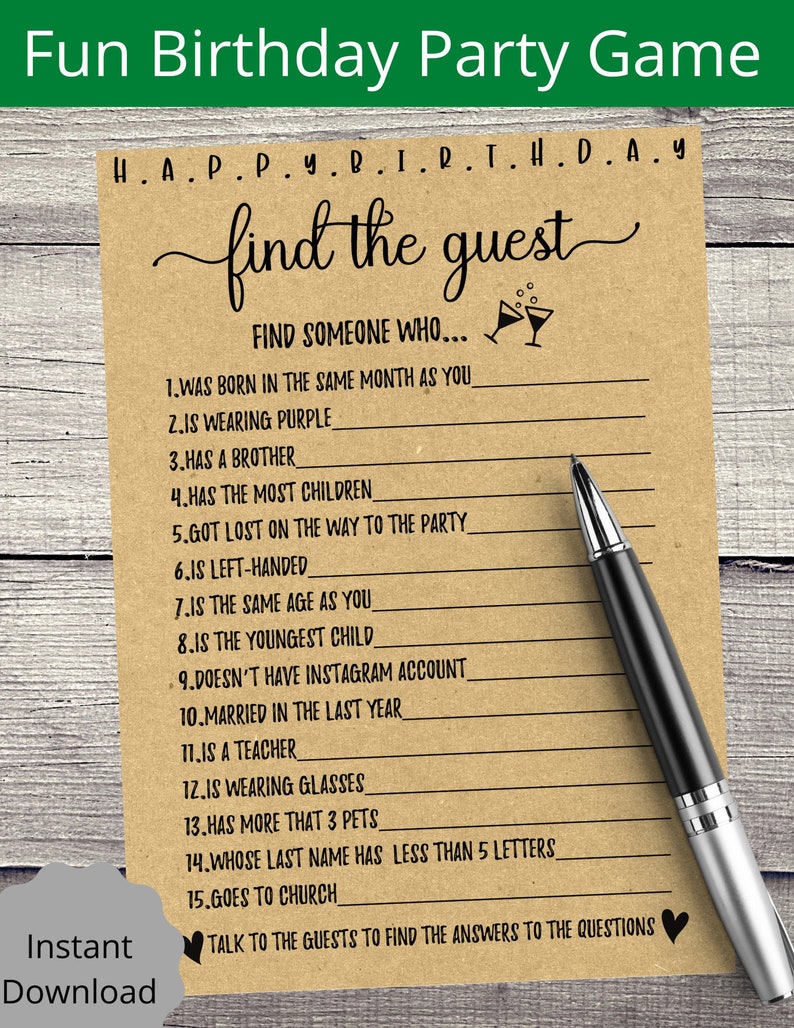 Fun Birthday Party Game
H.A.P.P.Y.B.I.R.T.H.D.A.Y
find the guest
FIND SOMEONE WHO...
1.WAS BORN IN THE SAME MONTH AS YOU
2.IS WEARING PURPLE
3.HAS A BROTHER
4.HAS THE MOST CHILDREN
5.GOT LOST ON THE WAY TO THE PARTY
6.IS LEFT-HANDED
7.IS THE SAME AGE AS YOU
8.IS THE YOUNGEST CHILD
9.DOESN'T HAVE INSTAGRAM ACCOUNT
10.MARRIED IN THE LAST YEAR
11.IS A TEACHER
12.IS WEARING GLASSES
13.HAS MORE THAT 3 PETS
14.WHOSE LAST NAME HAS LESS THAN 5 LETTERS
15.GOES TO CHURCH
TALK TO THE GUESTS TO FIND THE ANSWERS TO THE QUESTIONS
Instant
Download